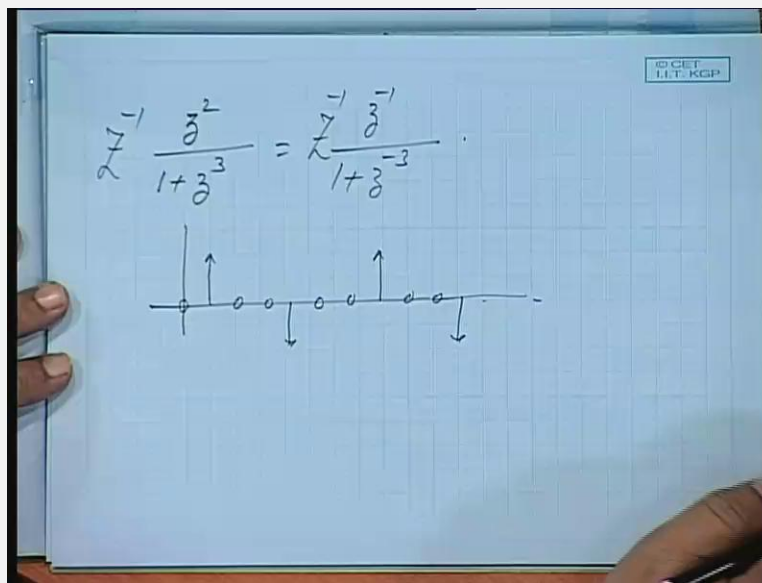 © CET
I.I.T. KGP
Z⁻¹ z² / (1 + z³) = Z⁻¹ z⁻¹ / (1 + z⁻³) .